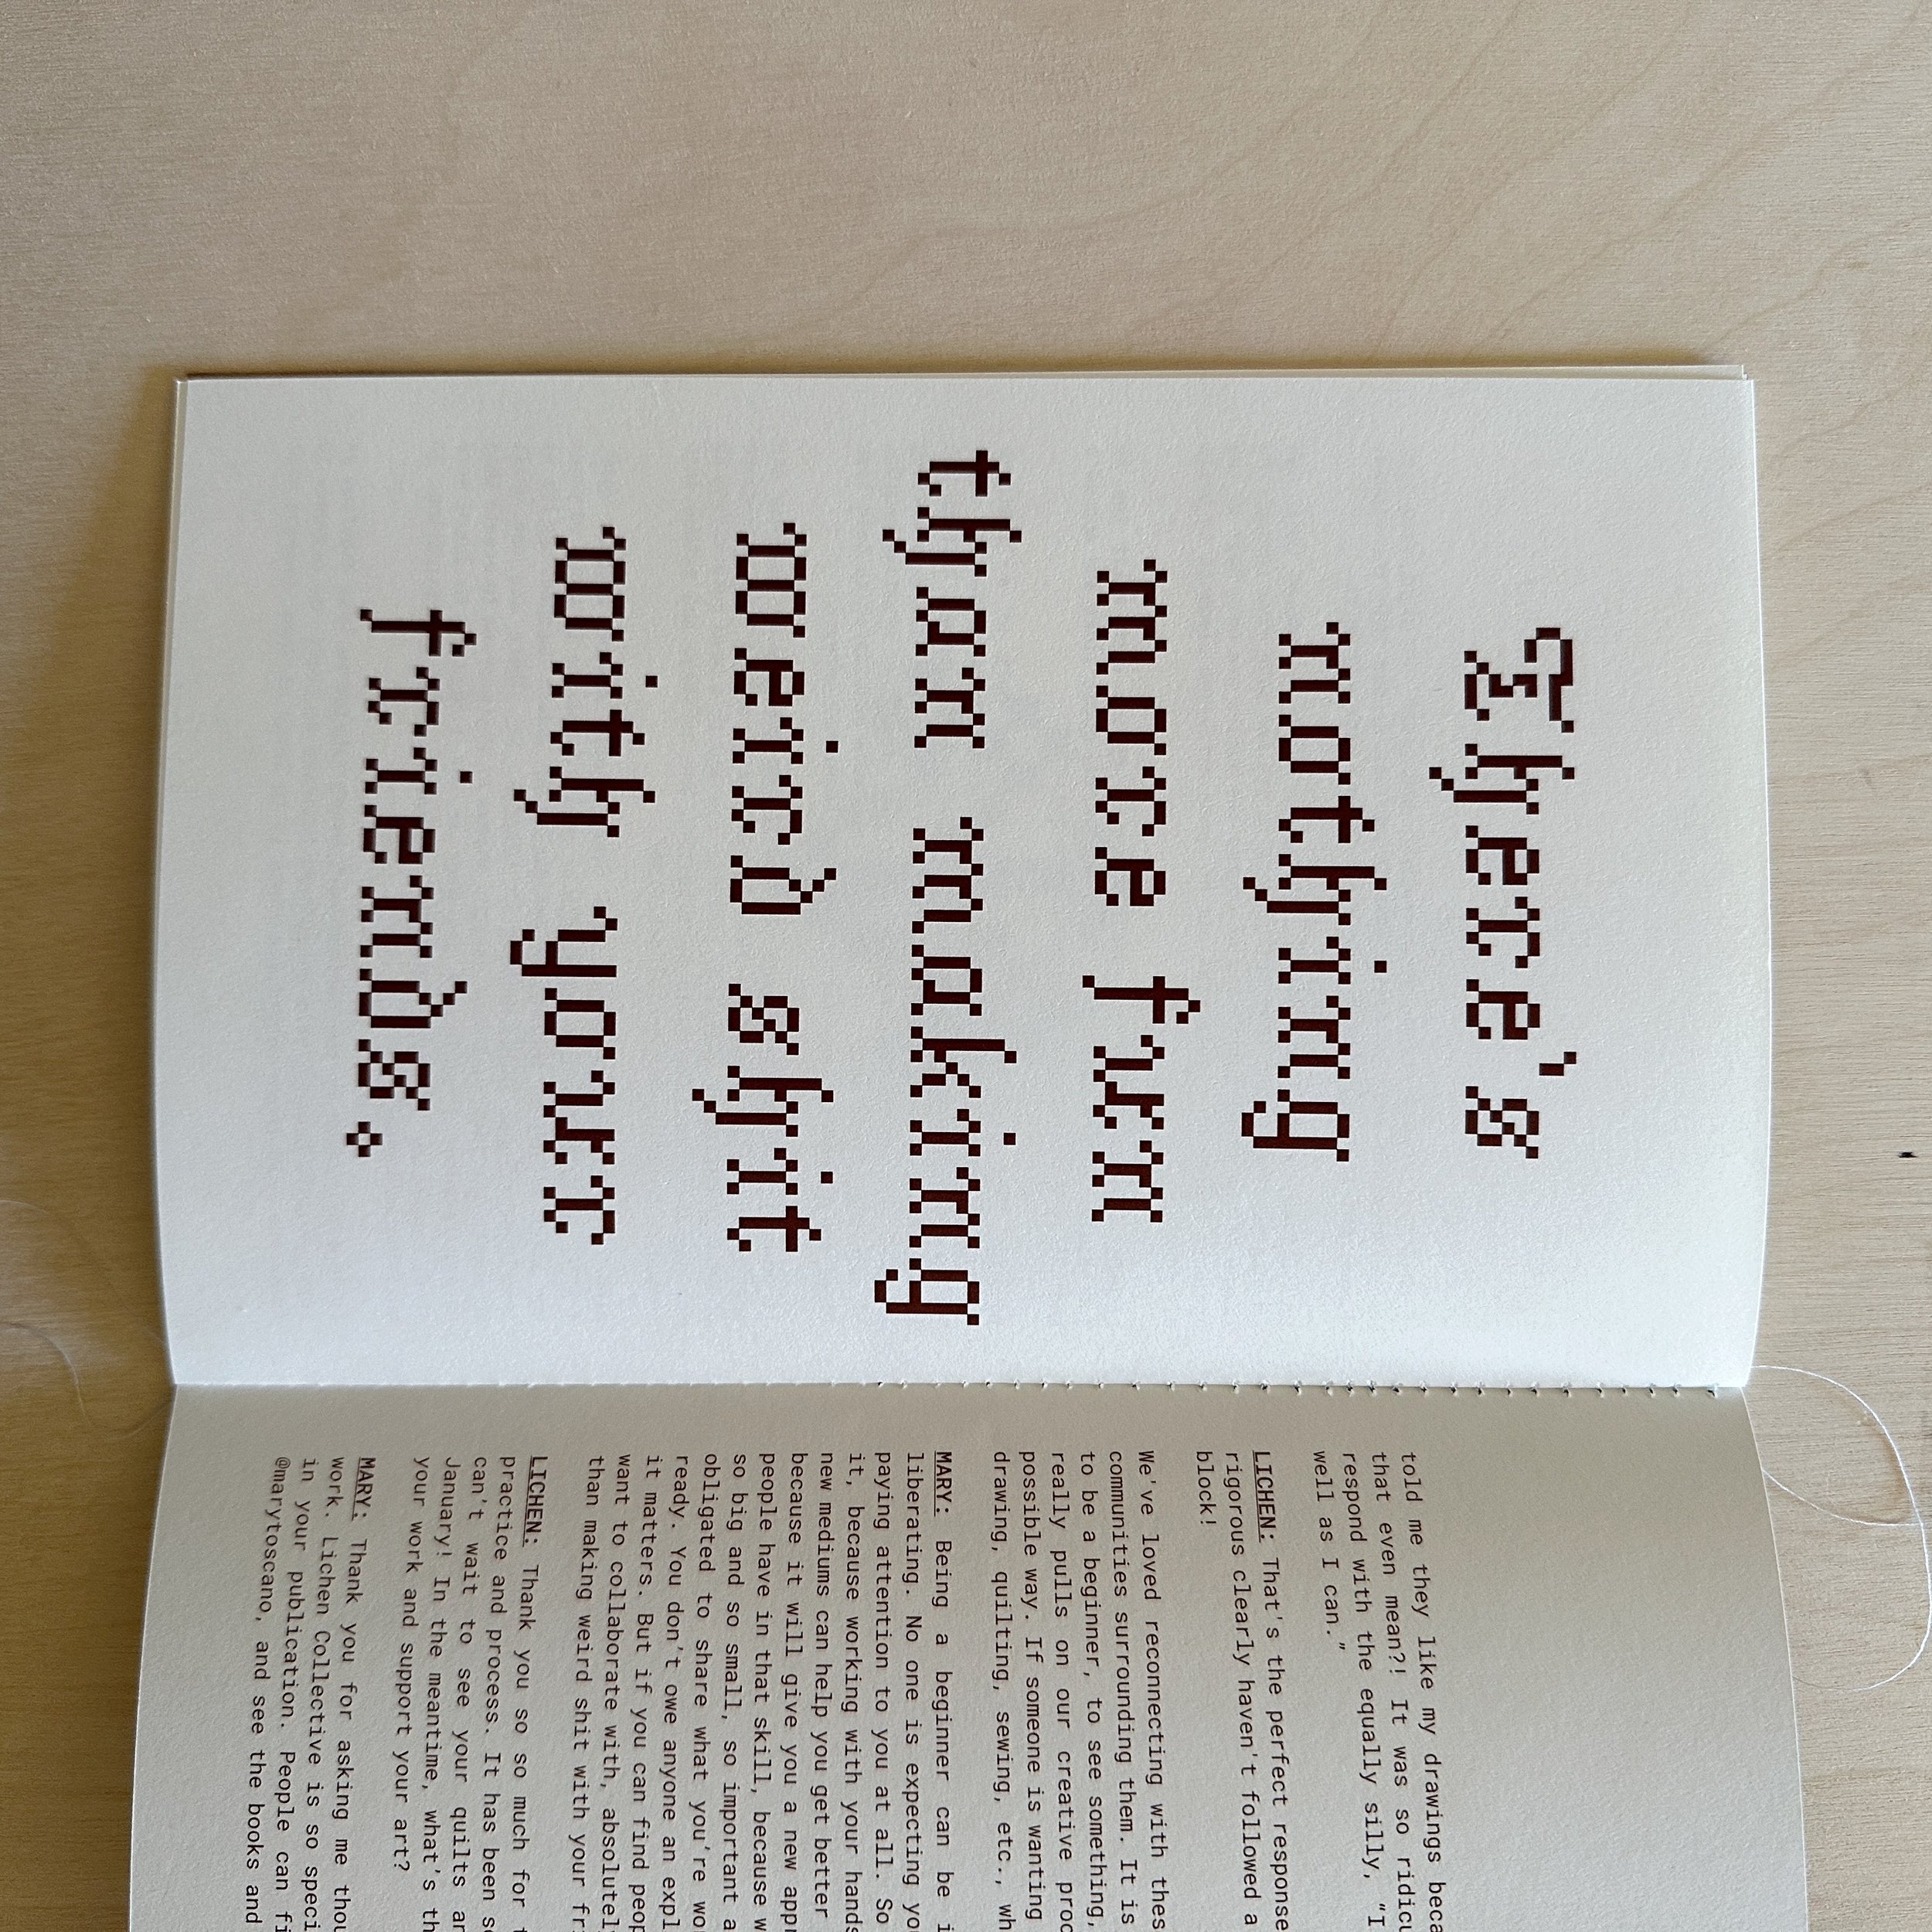 There's
nothing
more fun
than making
weird shit
with your
friends.
told me they like my drawings
that even mean?! It was so
respond with the equally silly, "I
well as I can."
LICHEN: That's the perfect response
rigorous clearly haven't followed a
block!
We've loved reconnecting with
communities surrounding them. It is
to be a beginner, to see something,
really pulls on our creative
possible way. If someone is wanting
drawing, quilting, sewing, etc.,
MARY: Being a beginner can be
liberating. No one is expecting
paying attention to you at all. So
it, because working with your
new mediums can help you get better
because it will give you a new
people have in that skill, because
so big and so small, so important
obligated to share what you're
ready. You don't owe anyone an
it matters. But if you can find
want to collaborate with,
than making weird shit with your
LICHEN: Thank you so so much for
practice and process. It has been
can't wait to see your quilts
January! In the meantime, what's
your work and support your art?
MARY: Thank you for asking me
work. Lichen Collective is so
in your publication. People can
@marytoscano, and see the books and